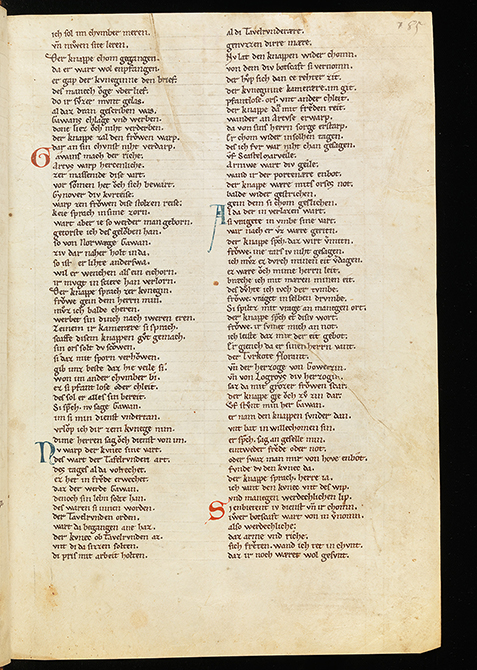 ich sol im chvmber meren.
vñ niwen site leren.
Der knappe chom gegangen.
da er wart wol enpfangen.
er gap der kvneginne den brief.
des manech ǒge vber lief.
do ir svzer mvnt gelas.
al daz dran geschriben was.
Gawans chlage vnd werben.
done liez ǒch niht verderben.
der knappe zal den frǒwen warp.
dar an sin chvnst niht verdarp.
Gawans mach der riche.
Artvs warp herzenliche.
zer massenide dise vart.
vor svmen het ǒch sich bewart.
Gynover div kvrteise.
warp zen frǒwen dise stolzen reise.
keie sprach in sime zorn.
wart aber ie so werder man geborn.
getorste ich des gelǒben han.
so von Norwæge Gawan.
ziv dar naher holt in da.
so ist er lihte anderswa.
wil er wenchen als ein eichorn.
ir mvge in sciere han verlorn.
Der knappe sprach zer kvnegin.
frǒwe gein dem herrn min.
mvz ich balde cheren.
werbet sin dinch nach iweren eren.
Zeinem ir kamerære si sprach.
scaffe disem knappen gvt gemach.
sin ors solt dv scǒwen.
si daz mit sporn verhǒwen.
gib imz beste daz hie veile si.
won im ander chvmber bi.
ez si pfantlose oder chleit.
des sol er alles sin bereit.
Si sprach. nv sage Gawan.
im si min dienst vndertan.
vrlǒp ich dir zem kvnege nim.
dime herren sag ǒch dienst von im.
Nv warp der kvnec sine vart.
des wart der Tafelrvnden art.
des tages al da volrechet.
ez het in frǒde erwechet.
daz der werde Gawan.
dennoch sin lebn solte han.
des waren si innen worden.
der Tavelrvnden orden.
wart da begangen ane haz.
der kvnec ob Tavelrvnden az.
vnt di da sizzen solten.
di pris mit arbeit holten.
al di Tavelrvndære.
genvzzen dirre mære.
Nv lat den knappen wider chomn.
von dem div botscaft si vernomn.
der hvp sich dan ze rehter zit.
der kvneginne kamerære im git.
pfantlose. ors vnt ander chleit.
der knappe dan mit frǒden reit.
wander an Artvse erwarp.
da von sins herrn sorge erstarp.
Er chom wider in solhen tagen.
des ich fvr war niht chan gesagen.
vf Scastelmarveile.
Arniwe wart div geile.
wand ir der portenære enbot.
der knappe wære mit orses not.
balde wider gestrichen.
gein dem si chom geslichen.
Al da der in verlazen wart.
si vragete in vmbe sine vart.
war nach er vz wære geriten.
der knappe sprach. daz wirt vermiten.
frǒwe. ine tars iv niht gesagen.
ich mvz ez dvrch minen eit verdagen.
ez wære ǒch mime herrn leit.
bræche ich mit mæren minen eit.
des dvhte ich in der tvmbe.
frǒwe. vraget in selben drvmbe.
Si spiltez mit vrage an manegen ort.
der knappe sprach et disiv wort.
frǒwe. ir svmet mich an not.
ich leiste daz mir der eit gebot.
Er giench da er sinen herrn vant.
der Tvrkoyte Florant.
vnd der herzoge von Gowerzin.
vñ von Logroys div herzogin.
saz da mit grozer frǒwen scar.
der knappe gie ǒch zv zin dar.
Vf stvnt min her Gawan.
er nam den knappen svnder dan.
vnt bat in willechomen sin.
er sprach. sag an geselle min.
eintweder frǒde oder not.
oder swaz man mir von hove enbot.
fvnde dv den kvnec da.
der knappe sprach. herre. ia.
ich vant den kvnec vnt des wip.
vnd manegen werdechlichen lip.
Si enbietent iv dienst vñ ir chomn.
iwer botscaft wart von in vernomn.
also werdechliche.
daz arme vnd riche.
sich frǒten. wand ich tet in chvnt.
daz ir noch wæret wol gesvnt.